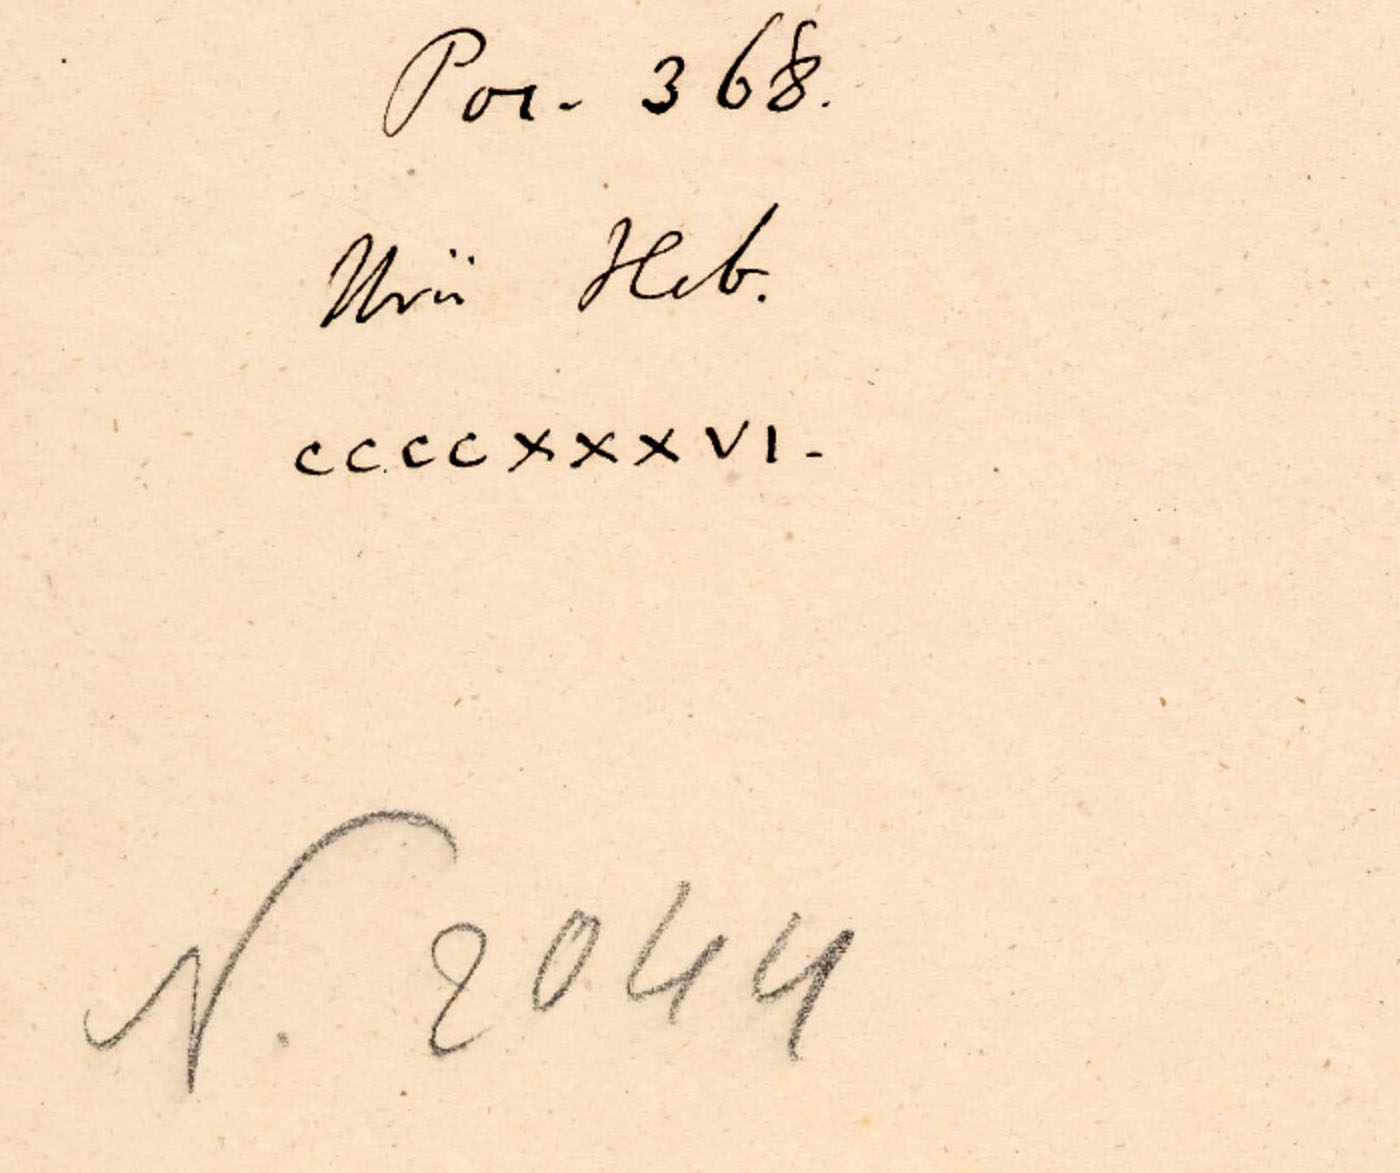 Poc. 368.
Urii Heb.
CCCCXXXVI.
N. 2044